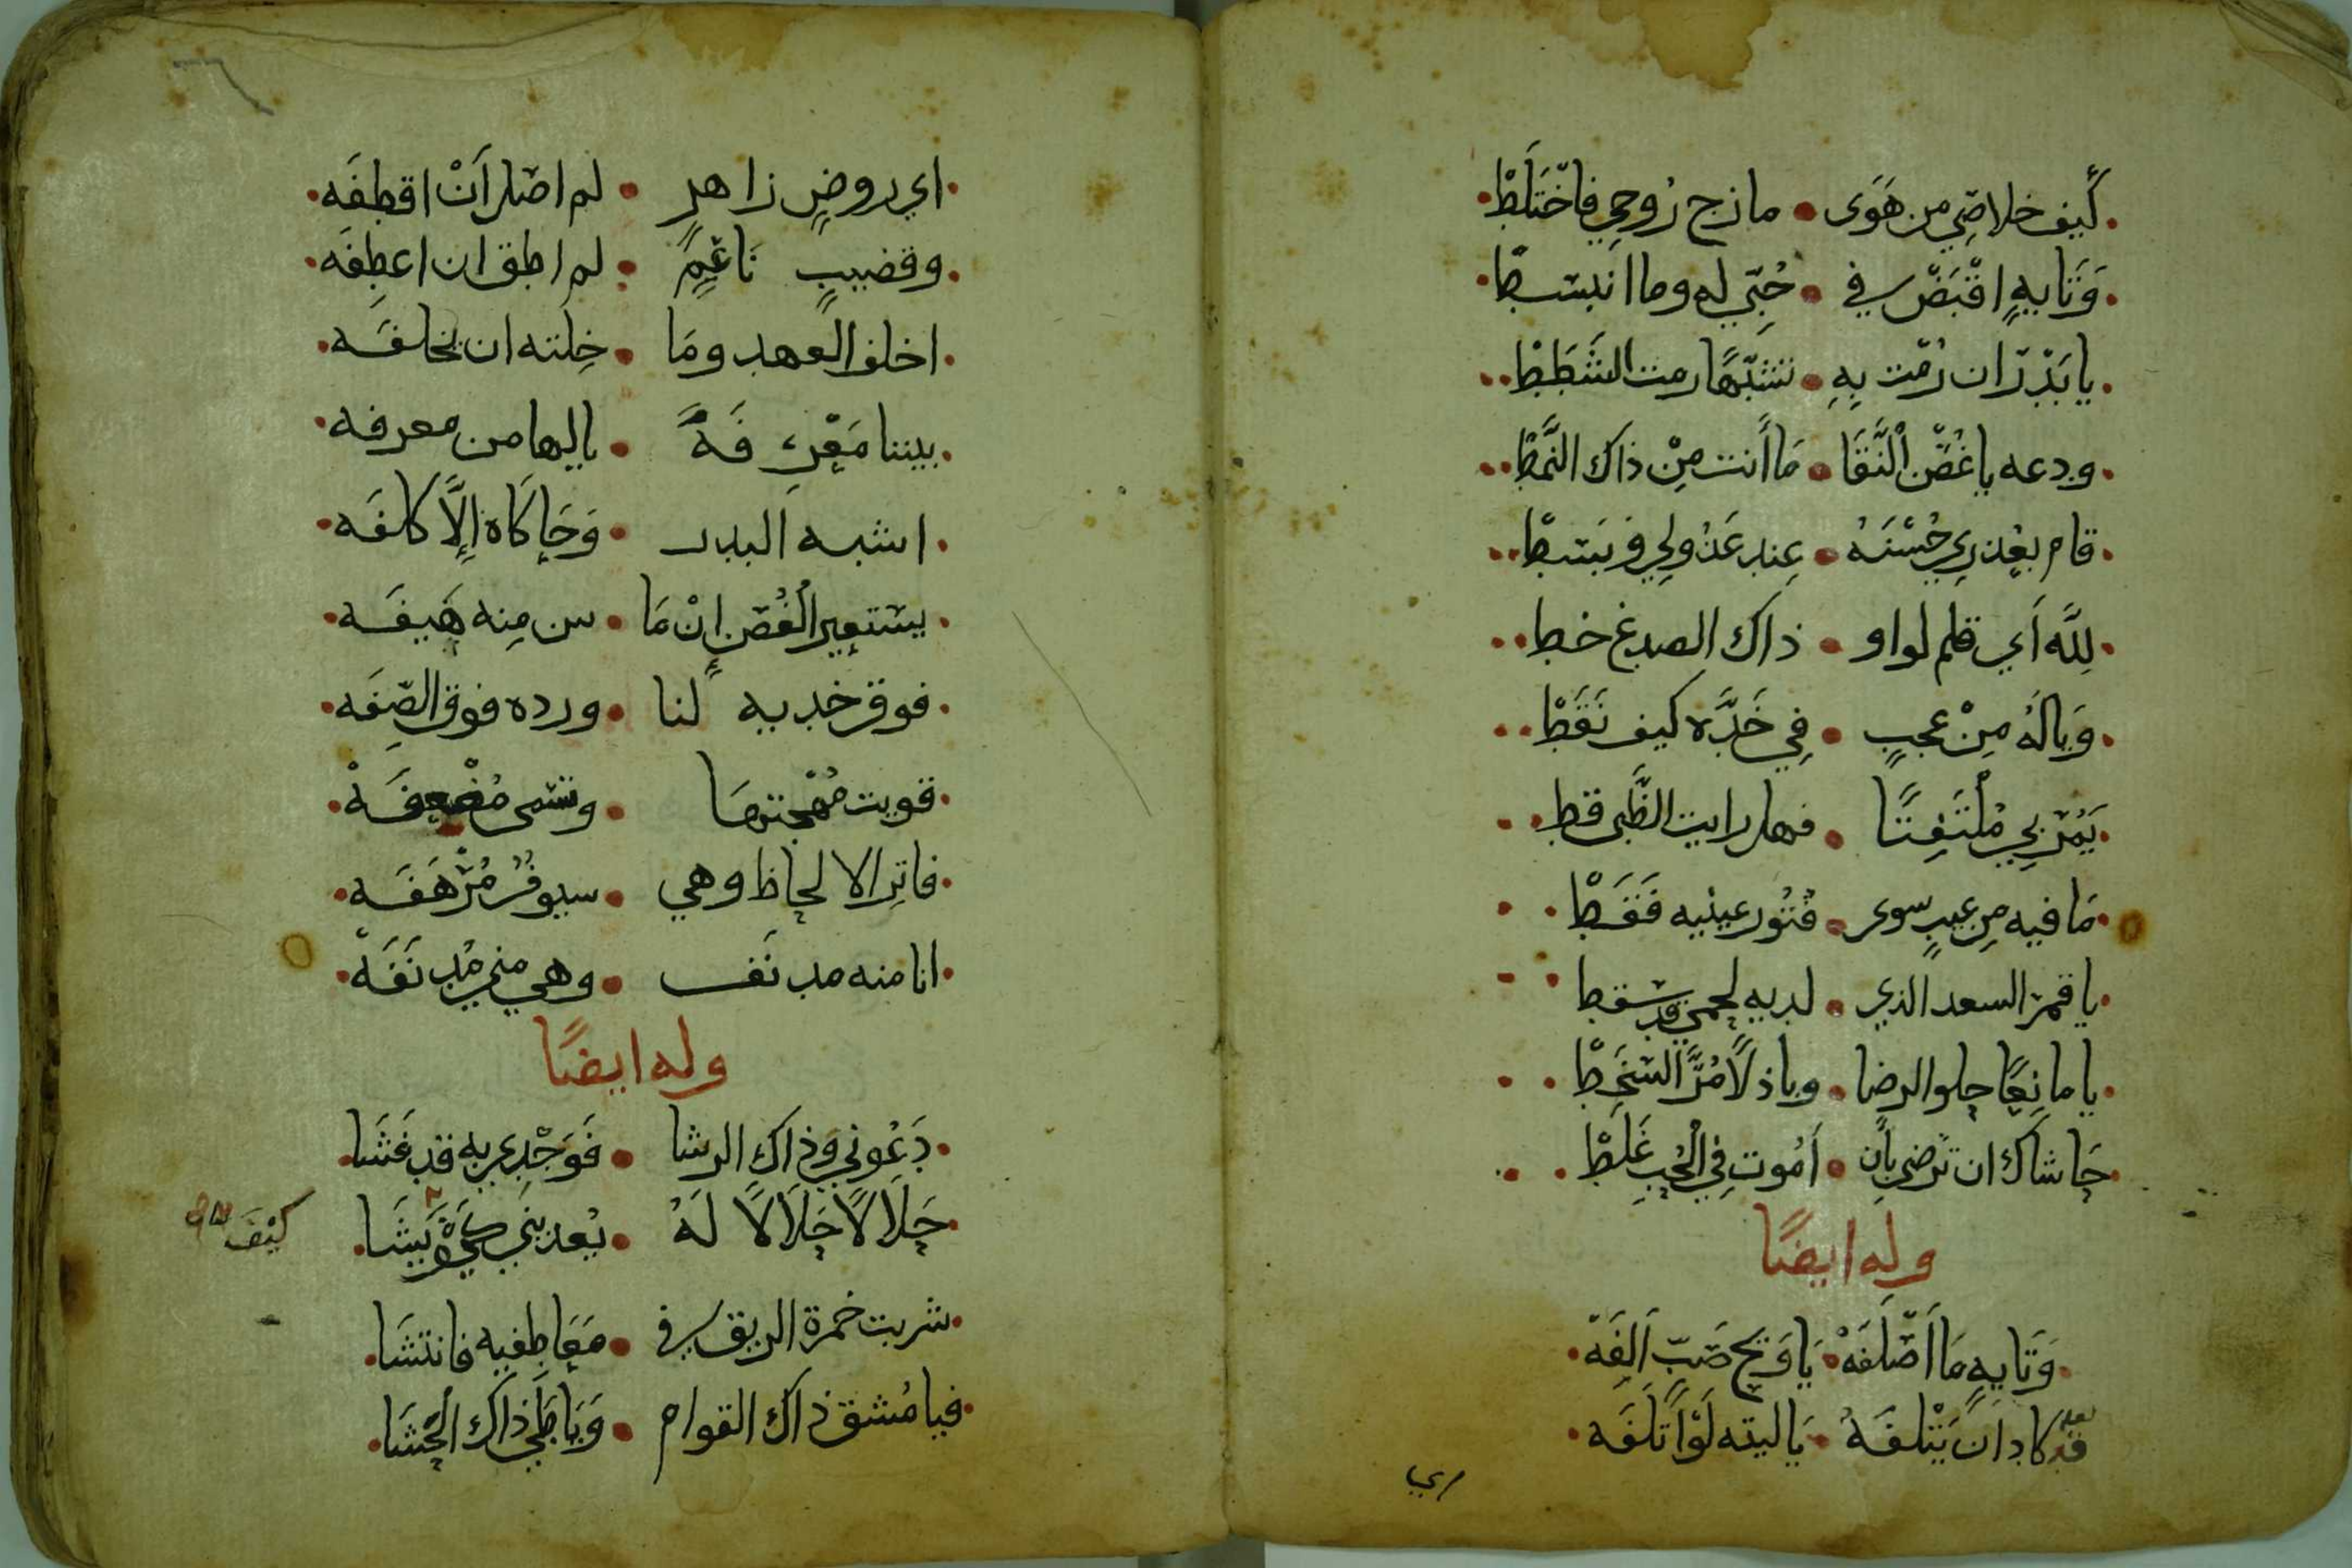 كَيف خلاصِي من هَوَى • مازج رُوحي فاخْتَلَطْ
وَتَايهٍ اقْبَضْ في • حُبّي له وما انبسطْ
يا بَدْرُ ان رُمْت بِهِ • تشَبُّهًا رمت الشَطَطْ
ودعه يا غُصْن اْلنَّقَا • مَا أَنت مِنْ ذاك النَّمَطْ
قام بعُذرِي حُسْنَهُ • عِند عَذُولِي وبَسَطْ
لِلَّه أَي قلم لواو • ذاك الصدغ خط
وَيالَهُ مِنْ عجبٍ • فِي خَدّه كيف نَقَطْ
يَمُرّ بِي مُلْتَفِتًا • فهل رايت الظَّبى قط
مَا فيه مِن عيبٍ سوى • فُتُور عينيه فَقَطْ
يا قمر السعد الذي • لديه نجمي قد سقط
يا مانِعًا حلو الرضا • وباذلًا مُرَّ السَّخَطْ
حَاشاك ان تَرضى بأن • أَمُوت فِي الْحُبِ غَلَطْ
وله ايضًا
وَتَايهٍ مَا أَصْلَفَهْ • يَا وَيح صَبّ أَلِفَهْ
قد كاد ان يَتْلفَهُ • يَا ليته لَوْ أَتلَفَه
اي
اي روضٍ زاهرٍ • لم اصل أَنْ اقطِفَه
وقضيبٍ نَاعِمٍ • لم اطق ان اعطِفَه
اخلف العهد ومَا • خِلته ان يخلفَه
بيننا مَعْرِفَةً • يا لها من معرفه
اشبه البدر • وَحَاكَاهُ إِلَّا كلفَه
يستعير الْغُصن إنْ مَا • س مِنه هَيفَه
فوق خديه لنا • ورده فوق الصِفَه
قويت مُهْجتهَا • وتسمى مُضْعِفَهْ
فاتِر الالحاظ وهي • سيوفُ مُرْهَفَه
انا منه مدنَف • وهي مني مُدنَفَهْ
وله ايضًا
دَعُوني وذاك الرشا • فَوَجْدي به قد فَشَا
حَلَالًا حَلَالًا لَهُ • يُعذبني كَيف يَشَا
كيْفَ شاه
شربت خمرة الريق في • مَعَاطفيه فانتشَا
فيا مُشق ذاك القوام • وَيَا طَي ذاك الحَشَا